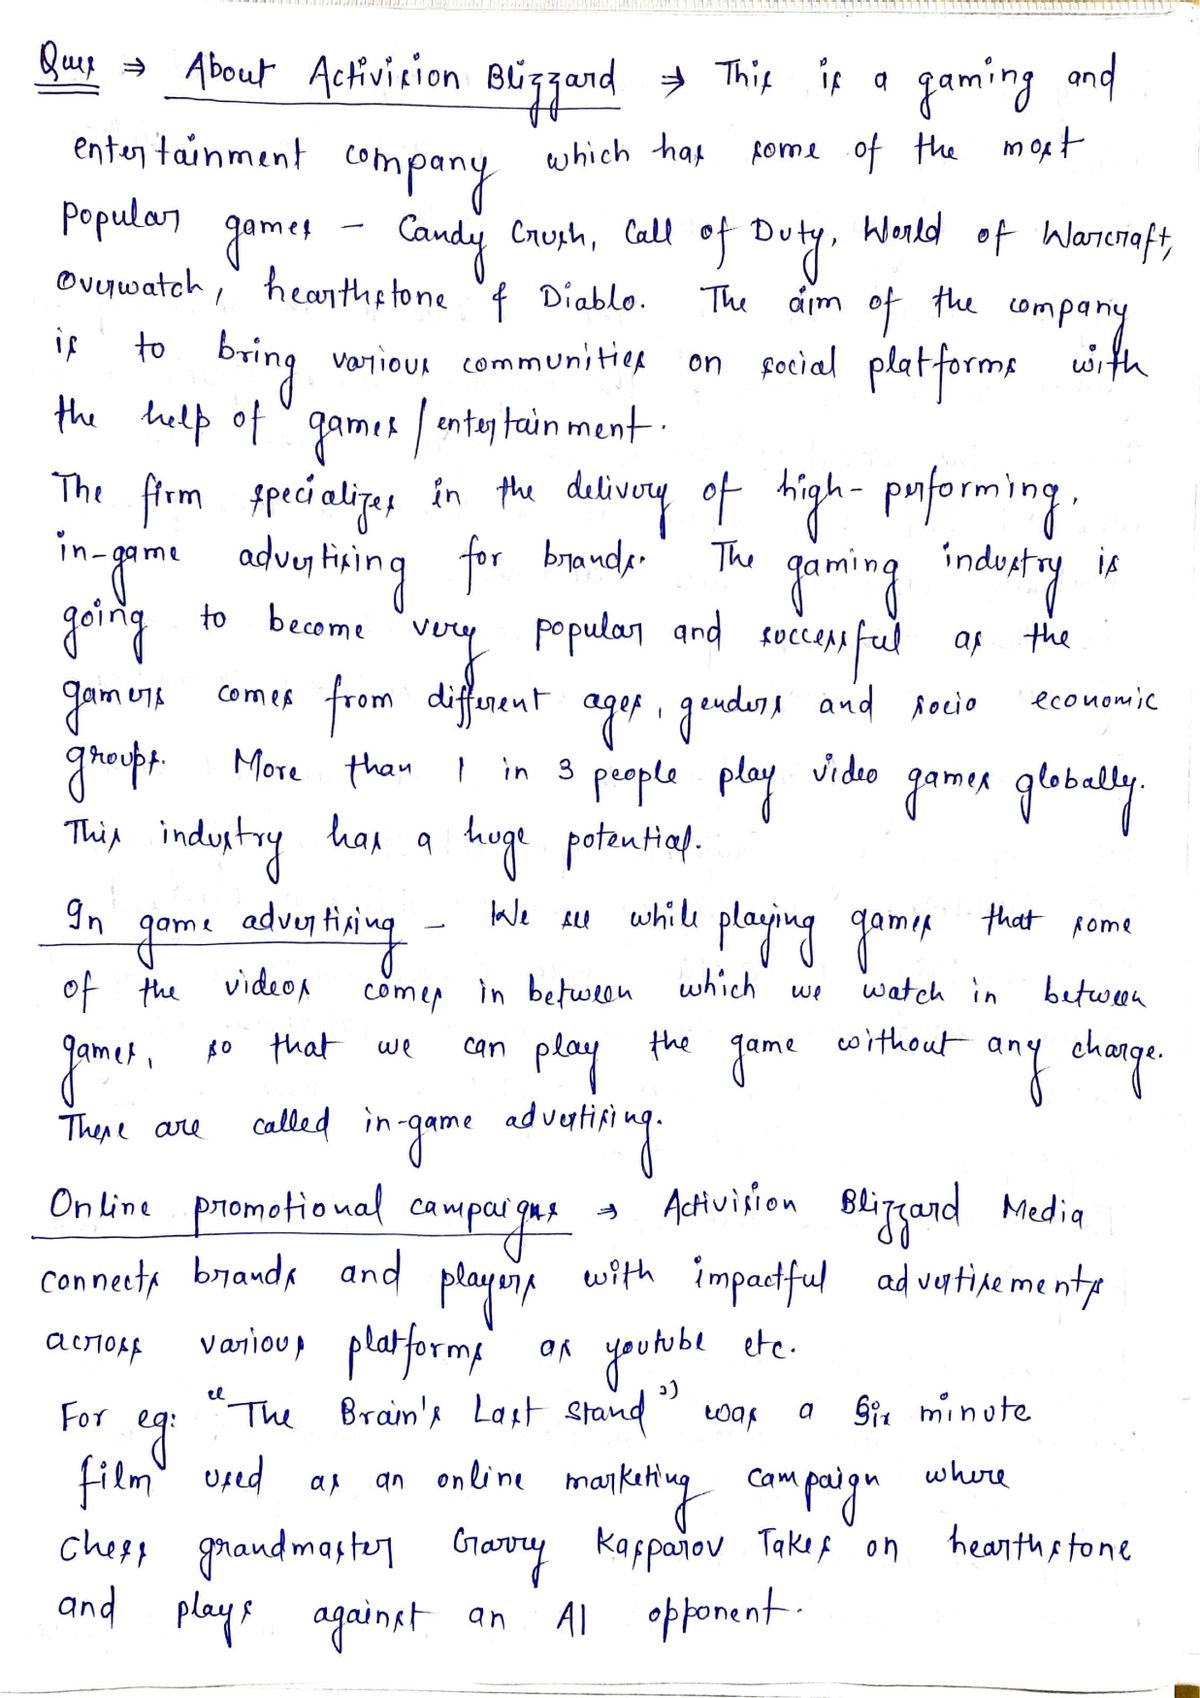 Ques ⇒ About Activision Blizzard → This is a gaming and
entertainment company which has some of the most
popular games - Candy Crush, Call of Duty, World of Warcraft,
Overwatch, hearthstone & Diablo. The aim of the company
is to bring various communities on social platforms with
the help of games/entertainment.
The firm specializes in the delivery of high-performing,
in-game advertising for brands. The gaming industry is
going to become very popular and successful as the
gamers comes from different ages, genders and socio economic
groups. More than 1 in 3 people play video games globally.
This industry has a huge potential.
In game advertising - We see while playing games that some
of the videos comes in between which we watch in between
games, so that we can play the game without any charge.
These are called in-game advertising.
Online promotional campaigns → Activision Blizzard Media
connects brands and players with impactful advertisements
across various platforms as youtube etc.
For eg: "The Brain's Last Stand" was a Six minute
film used as an online marketing campaign where
chess grandmaster Garry Kasparov Takes on hearthstone
and plays against an AI opponent.